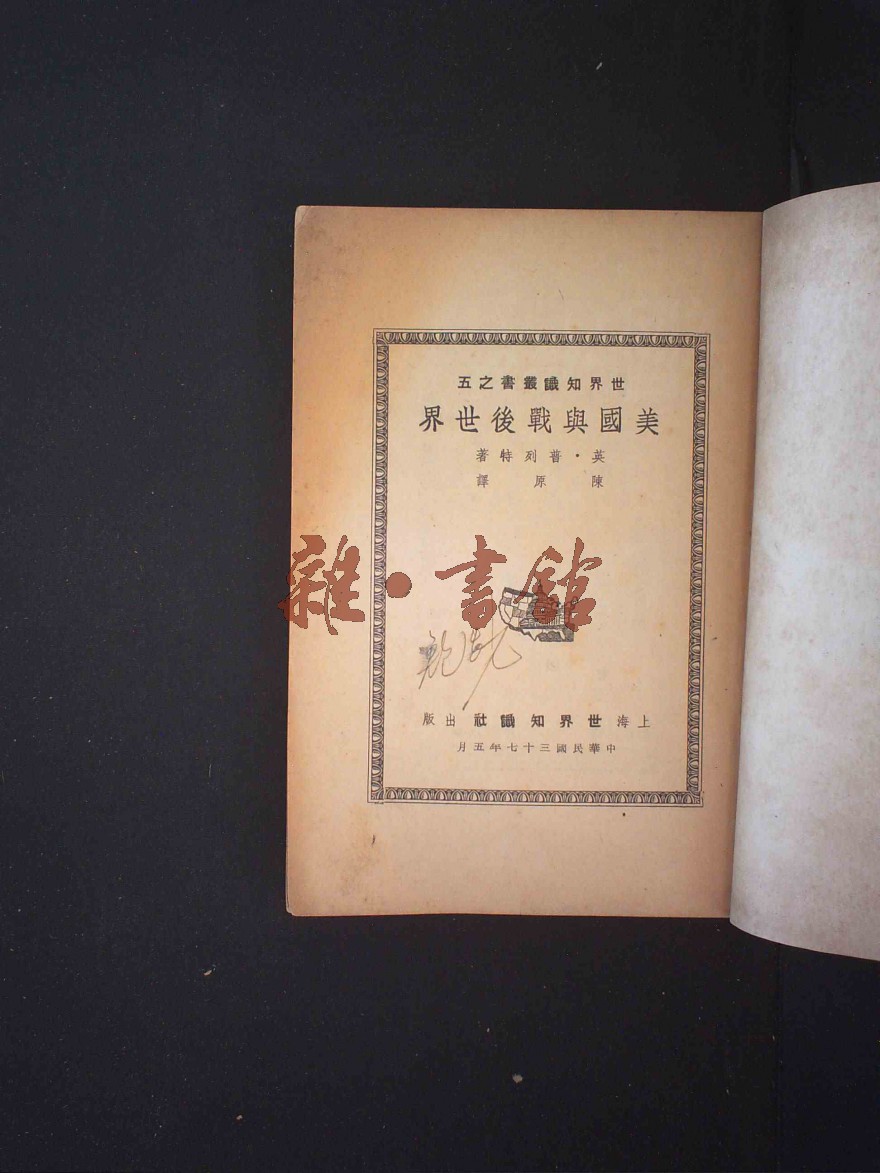 世界知識叢書之五
美國與戰後世界
英·普列特著
陳原譯
雜·書館
上海世界知識社出版
中華民國三十七年五月